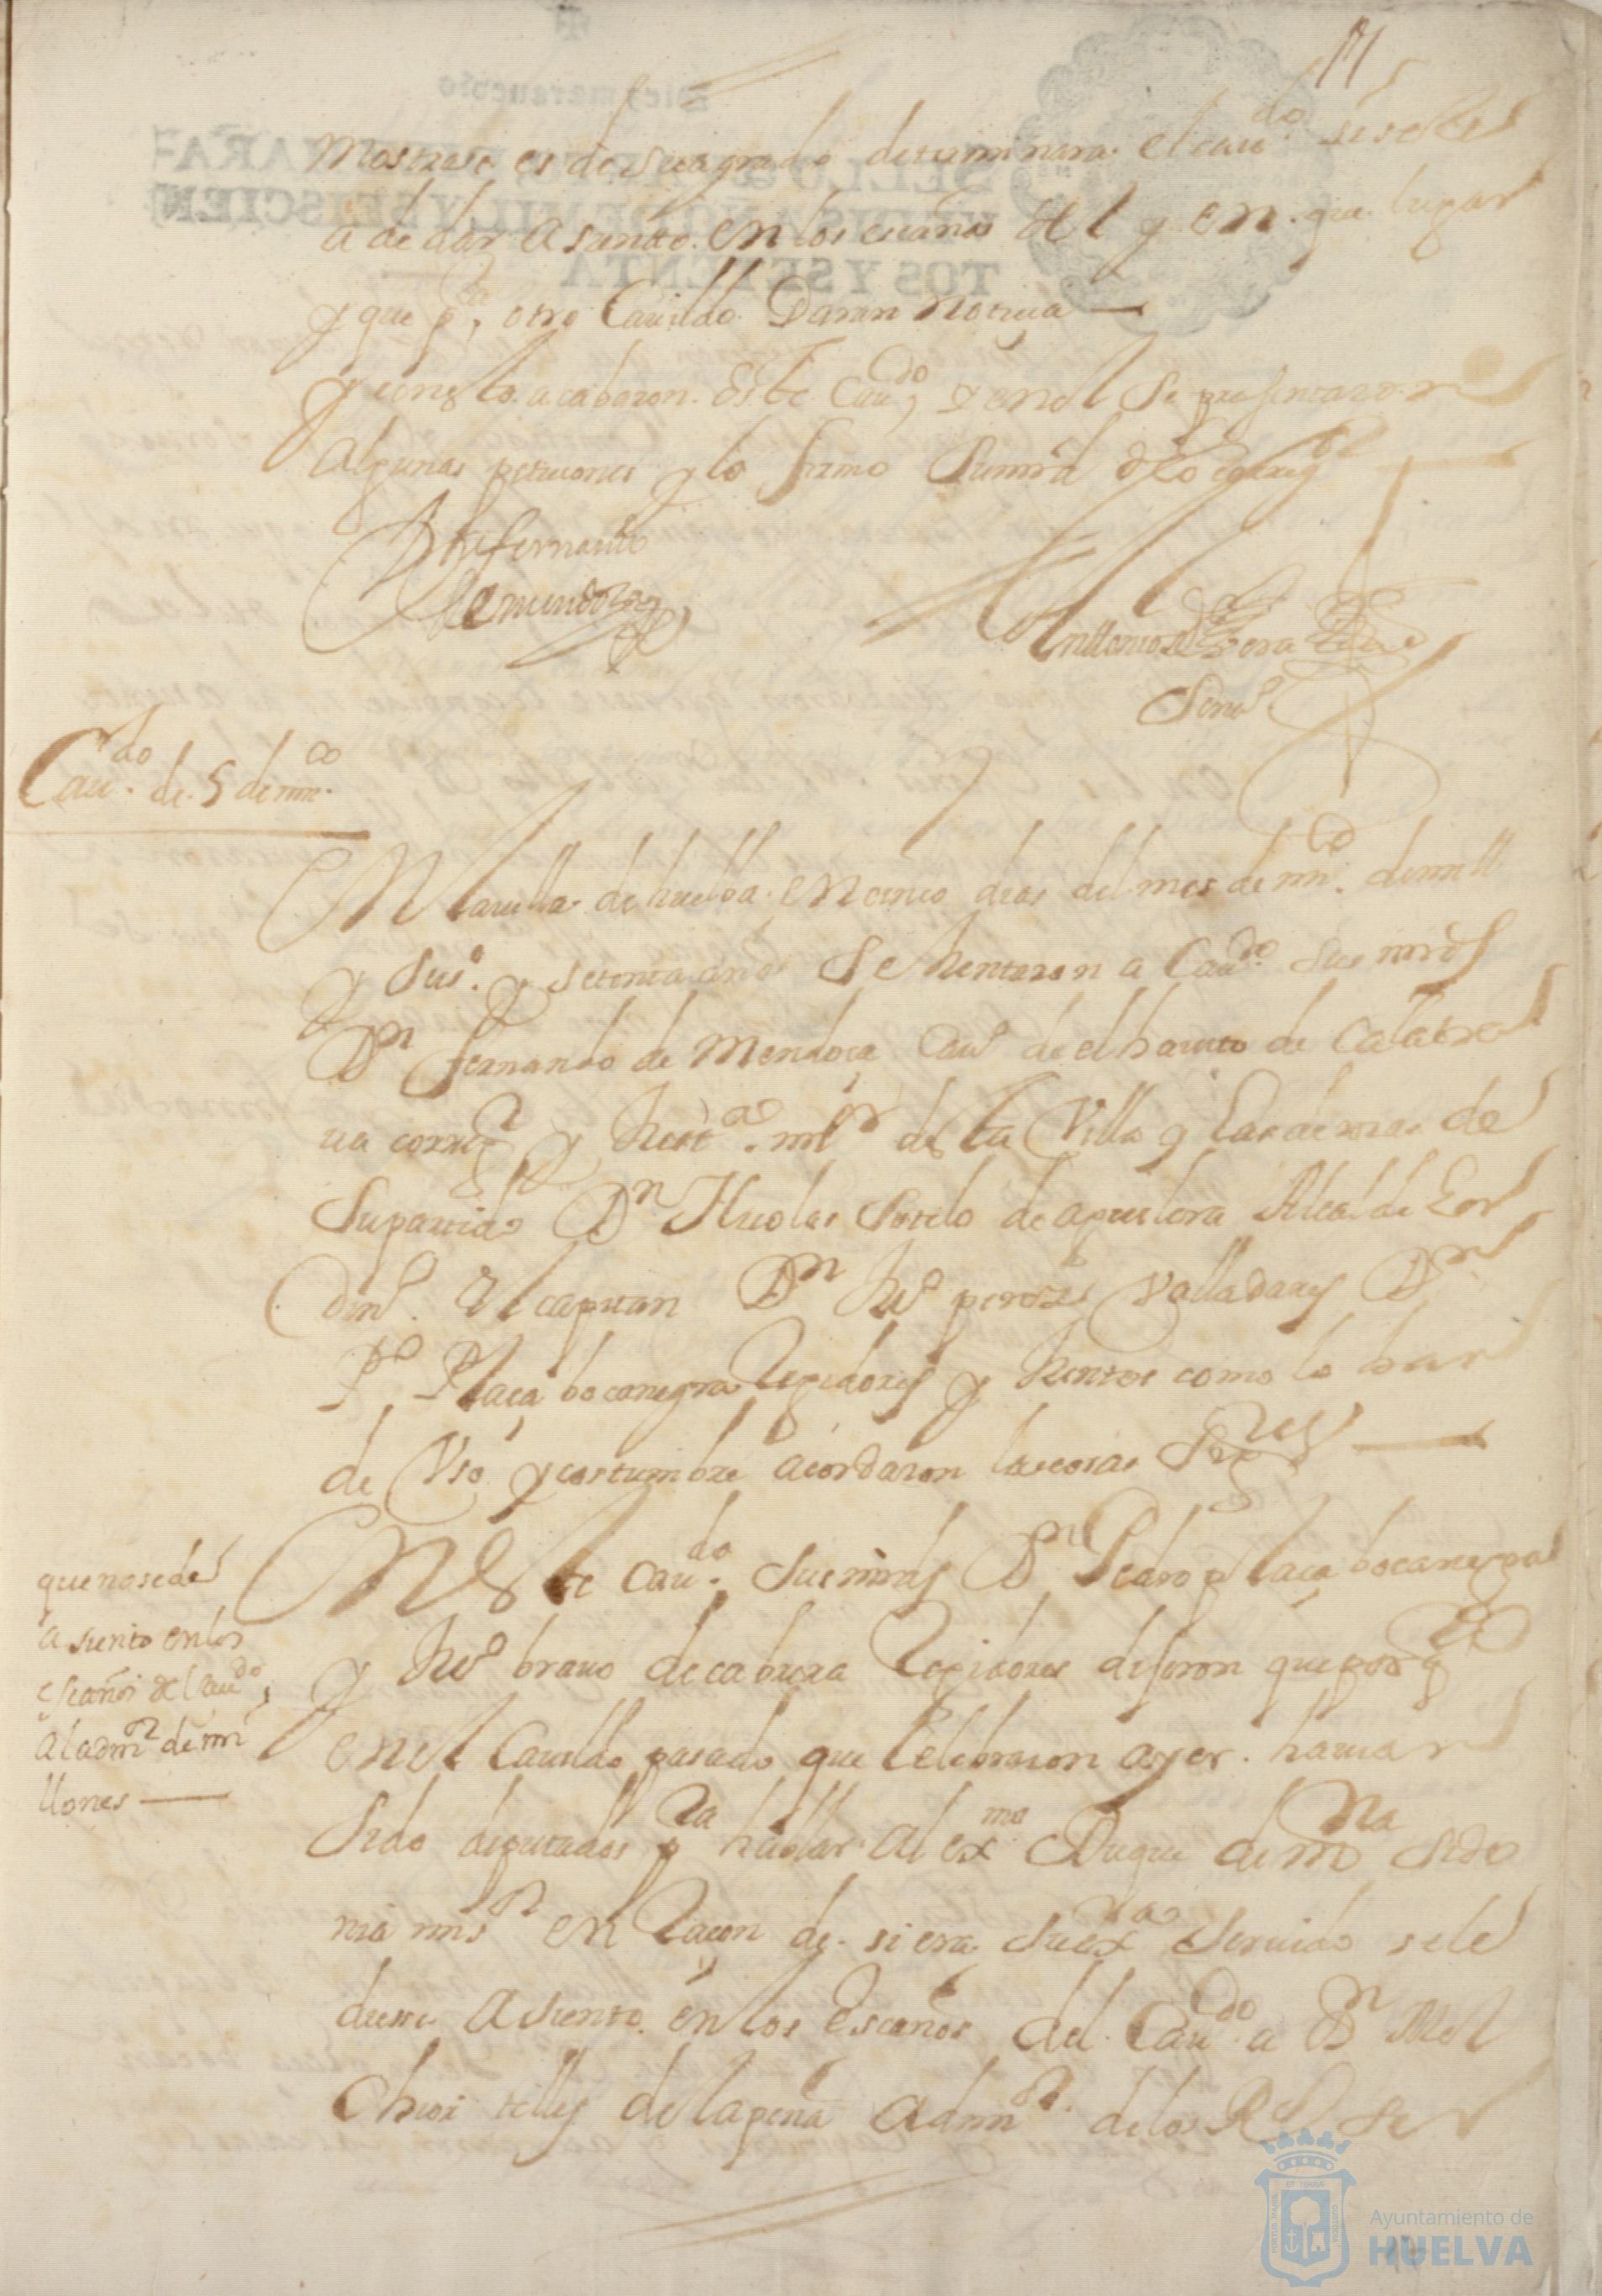 mostrase es de su agrado determinara el cavdo si se le
a de dar asiento en los escaños del y en que lugar
y que pa otro Cavildo Daran Noticia
y con esto acabaron este Caudo y en el se presentaron
algunas peticiones y lo firmo Su mrd
Dn fernando
de mendoza
Antonio de
Scriuo
Caudo de 5 de mco
EN la villa de huelba en cinco dias del mes de mco de mill
y seisos y setenta años se Juntaron a Caudo sus mrds
Dn fernando de Mendoça Cauo de el hauito de Calatra
ua corregr y Justa mor desta Villa y las demas de
Su partido Dn Nicolas Sotelo de aguilera Alcalde hor
dino el capitan Dn Juo perez Valladares Dn
Po Plaça bocanegra Regidores y Juntos como lo han
de Vso y costumbre acordaron las cosas sigtes
EN este caudo sus mrds Dn Pedro plaça bocanegra
y Juo brauo de cabrera Regidores dijeron que por qto
en el Cauildo pasado que celebraron ayer hauian
sido diputados pra hablar al exmo Duque de mna sido
nia mi sr en Raçon de si era su exa seruido se le
diesse asiento en los Escaños del Caudo a Dn Mel
Chior telles de la peña admor de los Rs ser
que no se de
asiento en los
escaños del caudo
al admor de mi
llones
Ayuntamiento de
HUELVA